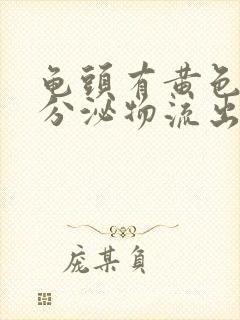 龟頭有黄色
分泌物流出
庞某負